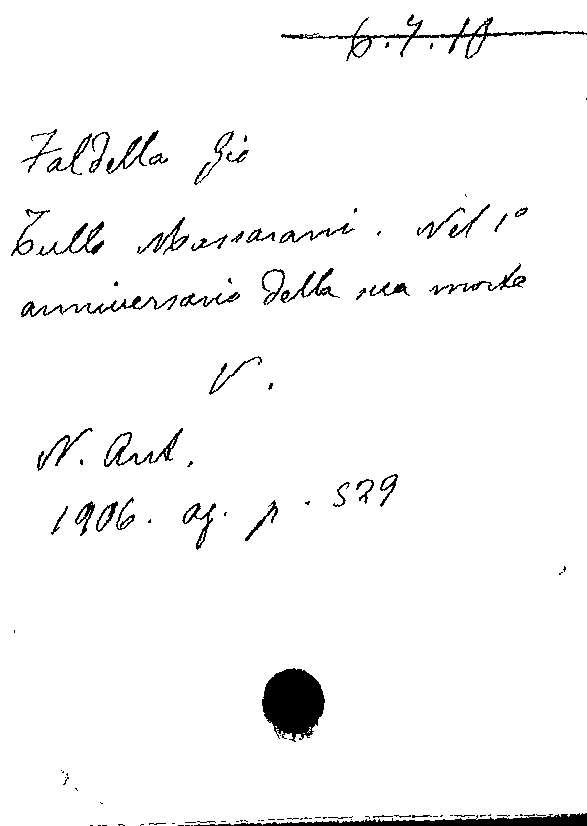 6.7.10
Faldella Gio
Tullo Massarani. Nel 1°
anniversario della sua morte
V.
N. Ant.
1906. ag. p. 529